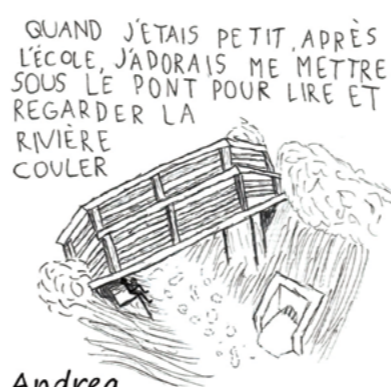 QUAND J'ETAIS PETIT, APRÈS
L'ÉCOLE, J'ADORAIS ME METTRE
SOUS LE PONT POUR LIRE ET
REGARDER LA
RIVIÈRE
COULER
Andrea